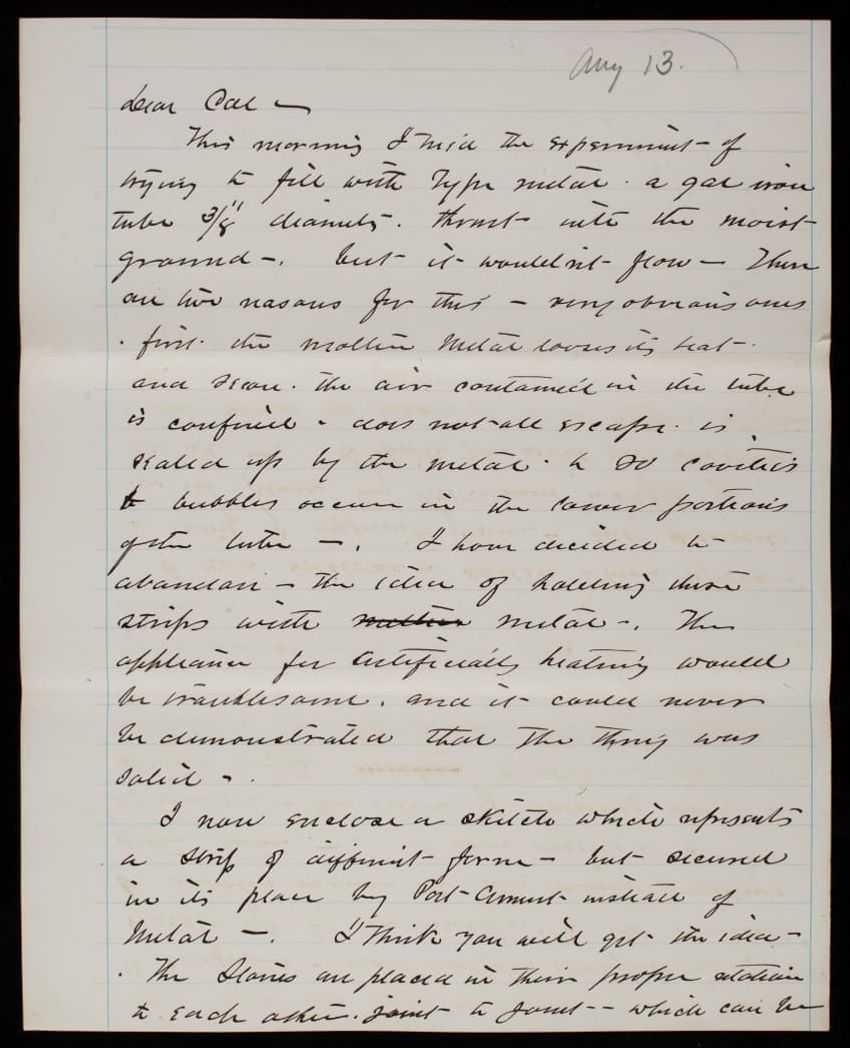 Aug 13.
Dear Col —
This morning I tried the experiment of
trying to fill with Type metal. a gal iron
tube 3/8" diameter. thrust into the moist
ground —. but it wouldn't flow — There
are two reasons for this — very obvious ones
. first. the molten metal looses its heat.
and Secon. the air contained in the tube
is confined - does not all escape. is
sealed up by the metal. & so cavities
& bubbles occur in the lower portions
of the tube —. I have decided to
abandon — the idea of holding these
strips with molten metal —. The
appliance for artificially heating would
be troublesome. and it could never
be demonstrated that the thing was
solid - .
I now enclose a sketch which represents
a strip of different form — but secured
in its place by Port Cement instead of
Metal —. I Think you will get the idea —
. The Stones are placed in their proper relation
to each other. joint to joint - which can be